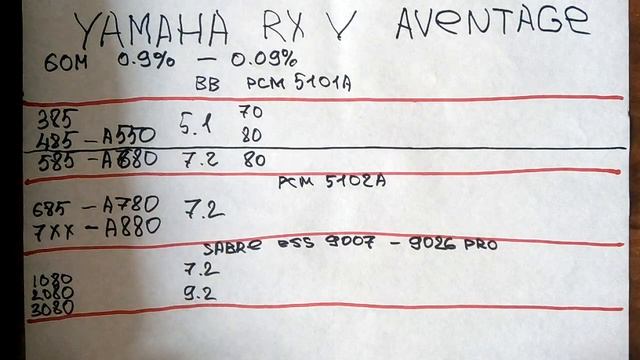 YAMAHA RX V AVENTAGE
60M 0.9% — 0.09%
BB PCM 5101A
385 5.1 70
485 – A550 80
585 – A680 7.2 80
PCM 5102A
685 – A780 7.2
7XX – A880
SABRE ESS 9007 – 9026 PRO
1080 7.2
2080 9.2
3080